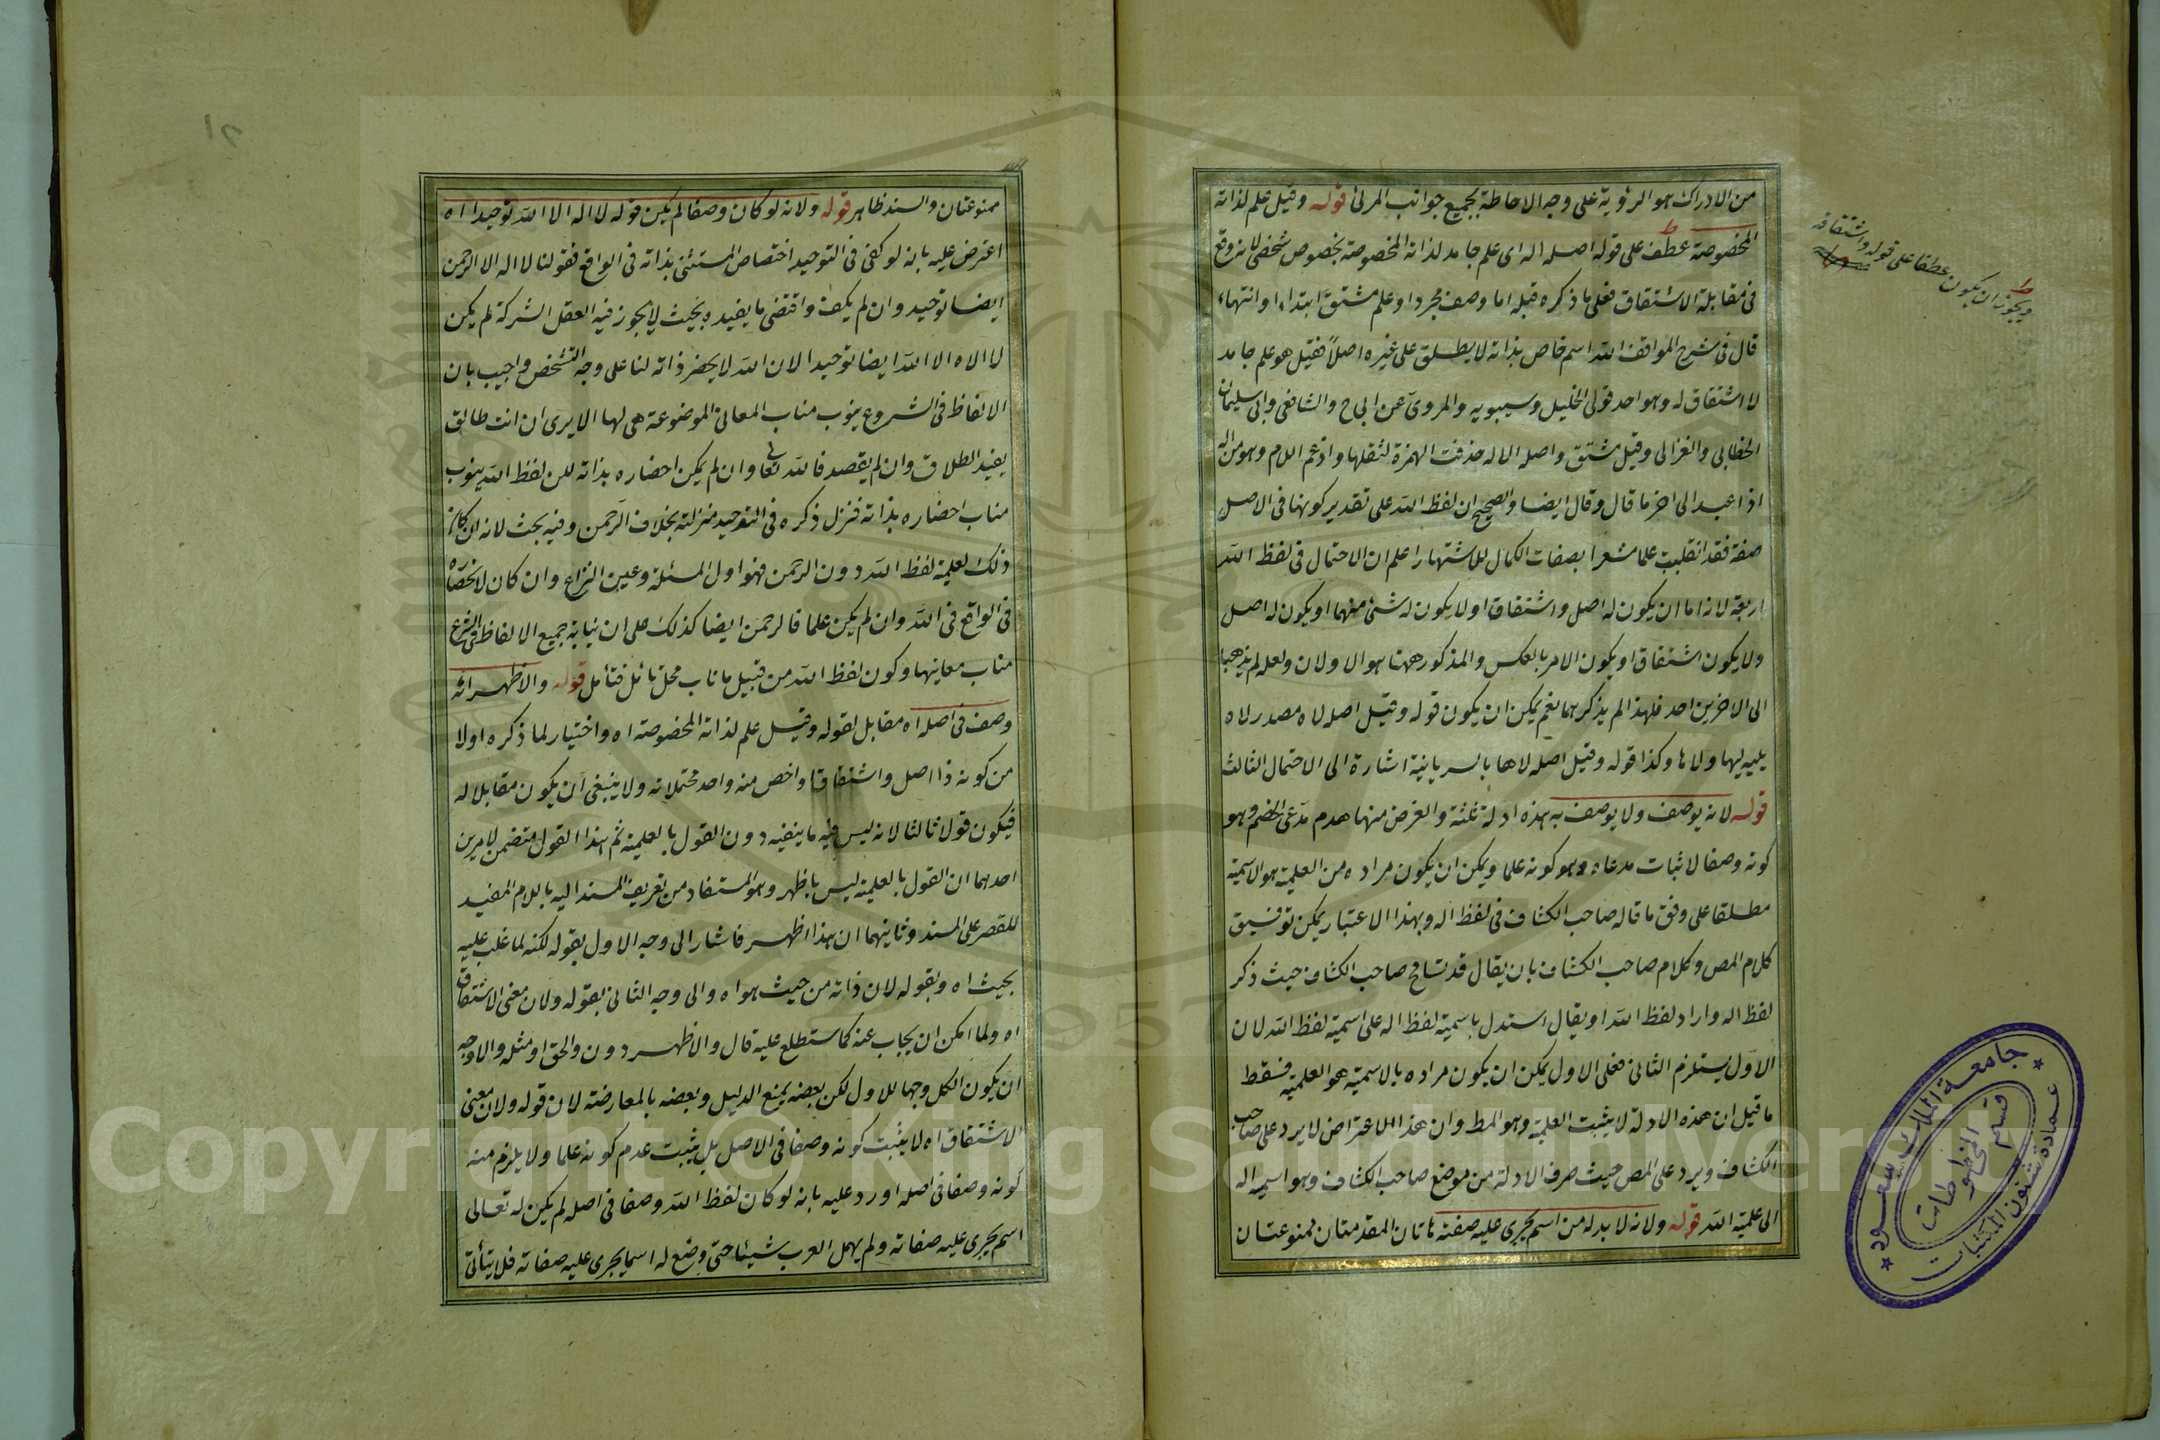 من الادراك هو الرؤية على وجه الاحاطة بجميع جوانب المرئى قوله وقيل علم لذاته
المخصوصة عطف على قوله اصله اله اى علم جامد لذاته المخصوصة بخصوص شخصى لانه وقع
فى مقابلة الاشتقاق فعلى ما ذكره قبله اما وصف مجرد او علم مشتق ابتداء او انتهاء
قال فى شرح المواقف الله اسم خاص بذاته لا يطلق على غيره اصلا فقيل هو علم جامد
لا اشتقاق له وهو احد قولى الخليل وسيبويه والمروى عن ابى ح والشافعى وابى سليمان
الخطابى والغزالى وقيل مشتق واصله الاله حذفت الهمزة لثقلها وادغم اللام وهو من اله
اذا عبد الى اخر ما قال وقال ايضا والصحيح ان لفظ الله على تقدير كونها فى الاصل
صفة فقد انقلبت علما مشعرا بصفات الكمال للاشتهار اعلم ان الاحتمال فى لفظ الله
اربعة لانه اما ان يكون له اصل واشتقاق او لا يكون له شئ منهما او يكون له اصل
ولا يكون اشتقاق او يكون الامر بالعكس والمذكور ههنا هو الاولان ولعله لم يذهب
الى الاخرين احد فلهذا لم يذكرهما نعم يمكن ان يكون قوله وقيل اصله لاه مصدر لاه
يليه ليها ولاها وكذا قوله وقيل اصله لاها بالسريانية اشارة الى الاحتمال الثالث
قوله لانه يوصف ولا يوصف به هذه ادلة ثلثة والغرض منها هدم مدعى الخصم وهو
كونه وصفا لاثبات مدعاه وهو كونه علما ويمكن ان يكون مراده من العلمية هو الاسمية
مطلقا على وفق ما قاله صاحب الكشاف فى لفظ اله وبهذا الاعتبار يمكن توفيق
كلام المص وكلام صاحب الكشاف بان يقال قد تسامح صاحب الكشاف حيث ذكر
لفظ اله واراد لفظ الله او يقال استدل باسمية لفظ اله على اسمية لفظ الله لان
الاول يستلزم الثانى فعلى الاول يمكن ان يكون مراده بالاسمية هو العلمية فسقط
ما قيل ان هذه الادلة لا يثبت العلمية وهو المط وان هذا الاعتراض لا يرد على صاحب
الكشاف ويرد على المص حيث صرف الادلة من موضع صاحب الكشاف وهو اسمية اله
الى علمية الله قوله ولانه لا بد له من اسم يجرى عليه صفته هاتان المقدمتان ممنوعتان
ويجوز ان يكون عطفا على قوله واشتقاقه
جامعة الملك سعود
عمادة شئون المكتبات
قسم المخطوطات
١٢
ممنوعتان والسند ظاهر قوله ولانه لو كان وصفا لم يكن قوله لا اله الا الله توحيدا اه
اعترض عليه بانه لو كفى فى التوحيد اختصاص المستثنى بذاته فى الواقع فقولنا لا اله الا الرحمن
ايضا توحيد وان لم يكف واقتضى ما يفيده بحيث لا يجوز فيه العقل الشركة لم يكن
لا اله الا الله ايضا توحيدا لان الله لا يحضر ذاته لنا على وجه التشخص واجيب بان
الالفاظ فى الشروع ينوب مناب المعانى الموضوعة هى لها الا يرى ان انت طالق
يفيد الطلاق وان لم يقصد فالله تعالى وان لم يكن احضاره بذاته لكن لفظ الله ينوب
مناب احضاره بذاته فنزل ذكره فى التوحيد منزلته بخلاف الرحمن وفيه بحث لانه ان كان
ذلك لعلمية لفظ الله دون الرحمن فهو اول المسئلة وعين النزاع وان كان لانحصاره
فى الواقع فى الله وان لم يكن علما فالرحمن ايضا كذلك على ان نيابة جميع الالفاظ فى الشرع
مناب معانيها وكون لفظ الله من قبيل ما ناب محل تأمل فتأمل قوله والاظهر انه
وصف فى اصله اه مقابل لقوله وقيل علم لذاته المخصوصة اه واختيار لما ذكره اولا
من كونه ذا اصل واشتقاق واخص منه واحد محتملاته ولا ينبغى ان يكون مقابلا له
فيكون قولا ثالثا لانه ليس فيه ما ينفيه دون القول بالعلمية ثم هذا القول متضمن لامرين
احدهما ان القول بالعلمية ليس باظهر وهو المستفاد من تعريف المسند اليه باللام المفيد
للقصر على المسند وثانيهما ان هذا اظهر فاشار الى وجه الاول بقوله لكنه لما غلب عليه
بحيث اه وبقوله لان ذاته من حيث هو اه والى وجه الثانى بقوله ولان معنى الاشتقاق
اه ولما امكن ان يجاب عنه كما ستطلع عليه قال والاظهر دون والحق او مثله والاوجه
ان يكون الكل وجها للاول لكن بعضه بمنع الدليل وبعضه بالمعارضة لان قوله ولان معنى
الاشتقاق اه لا يثبت كونه وصفا فى الاصل بل يثبت عدم كونه علما ولا يلزم منه
كونه وصفا فى اصله اورد عليه بانه لو كان لفظ الله وصفا فى اصله لم يكن له تعالى
اسم يجرى عليه صفاته ولم يهمل العرب شيئا حتى وضع له اسما يجرى عليه صفاته فلا يتأتى